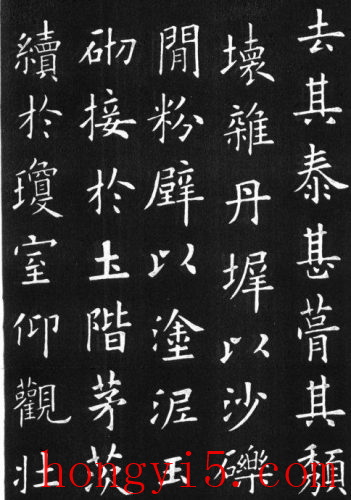 去其泰甚葺其頹
壞雜丹墀以沙礫
閒粉壁以塗泥玉
砌接於土階茅茨
續於瓊室仰觀壯
hongyi5.com